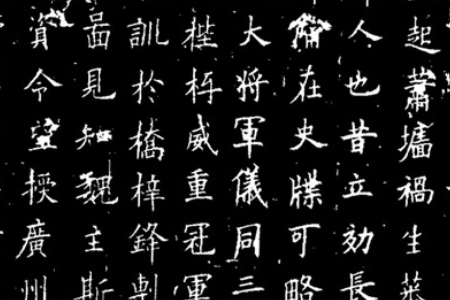 起蕭壚禍生
人也昔立効長
在史牒可略
大將軍儀同三
威重冠軍
訓於橋梓鋒
啚見知魏主斯
資令望授廣州